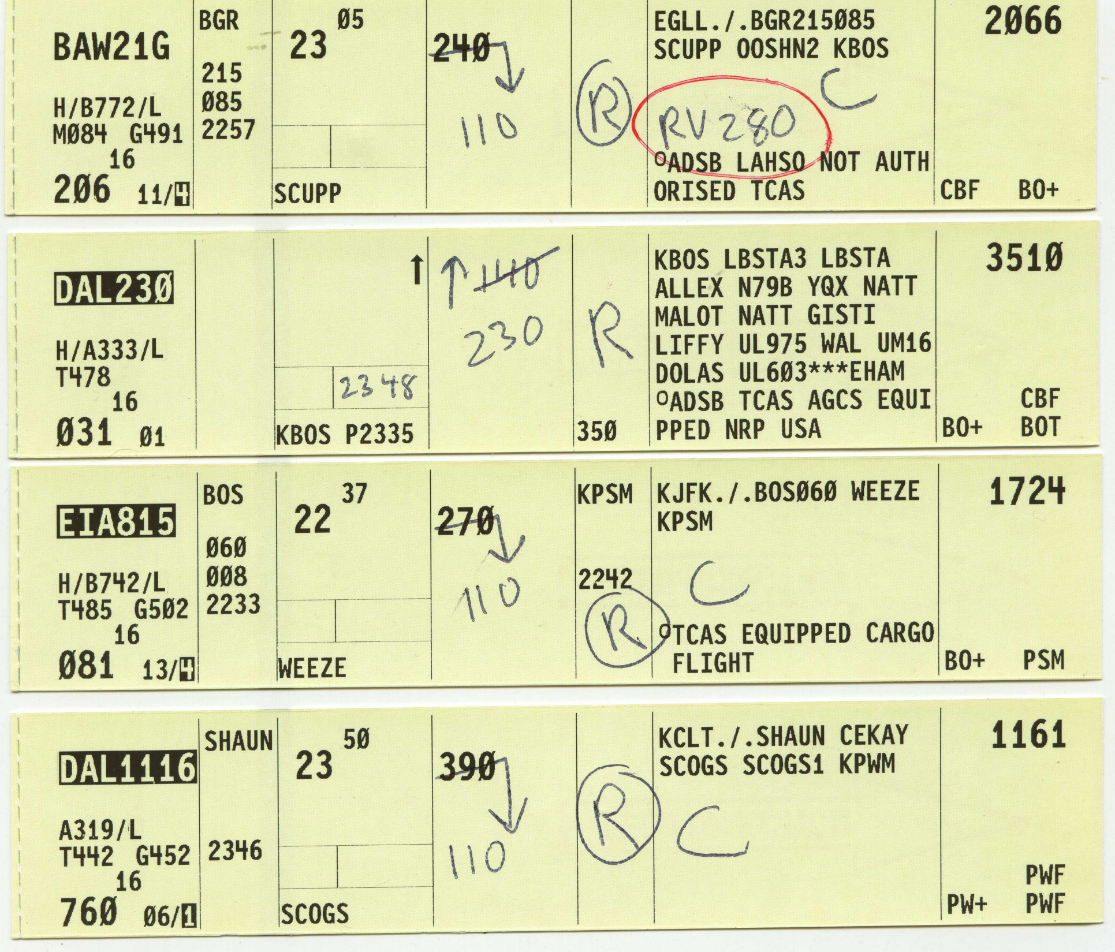 BAW21G
H/B772/L
MØ84 G491
16
2Ø6 11/4
BGR
215
Ø85
2257
23 Ø5
SCUPP
24Ø
110
R
EGLL./.BGR215Ø85
SCUPP OOSHN2 KBOS
C
RV 280
°ADSB LAHSO NOT AUTH
ORISED TCAS
2Ø66
CBF BO+
DAL23Ø
H/A333/L
T478
16
Ø31 Ø1
↑
2348
KBOS P2335
↑ 140
230
R
35Ø
KBOS LBSTA3 LBSTA
ALLEX N79B YQX NATT
MALOT NATT GISTI
LIFFY UL975 WAL UM16
DOLAS UL6Ø3***EHAM
°ADSB TCAS AGCS EQUI
PPED NRP USA
351Ø
CBF
BO+ BOT
EIA815
H/B742/L
T485 G5Ø2
16
Ø81 13/4
BOS
Ø6Ø
ØØ8
2233
22 37
WEEZE
27Ø
110
KPSM
2242
R
KJFK./.BOSØ6Ø WEEZE
KPSM
C
°TCAS EQUIPPED CARGO
FLIGHT
1724
BO+ PSM
DAL1116
A319/L
T442 G452
16
76Ø Ø6/1
SHAUN
2346
23 5Ø
SCOGS
39Ø
110
R
KCLT./.SHAUN CEKAY
SCOGS SCOGS1 KPWM
C
1161
PWF
PW+ PWF